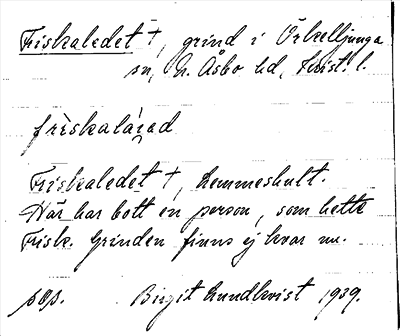 Friskaledet †, grind i Örkelljunga
sn, N. Åsbo hd, Krist. l.
friskalàad
Friskaledet †, Lemmeshult.
Här har bott en person, som hette
Frisk. Grinden finns ej kvar nu.
Birgit Lundkvist 1939.